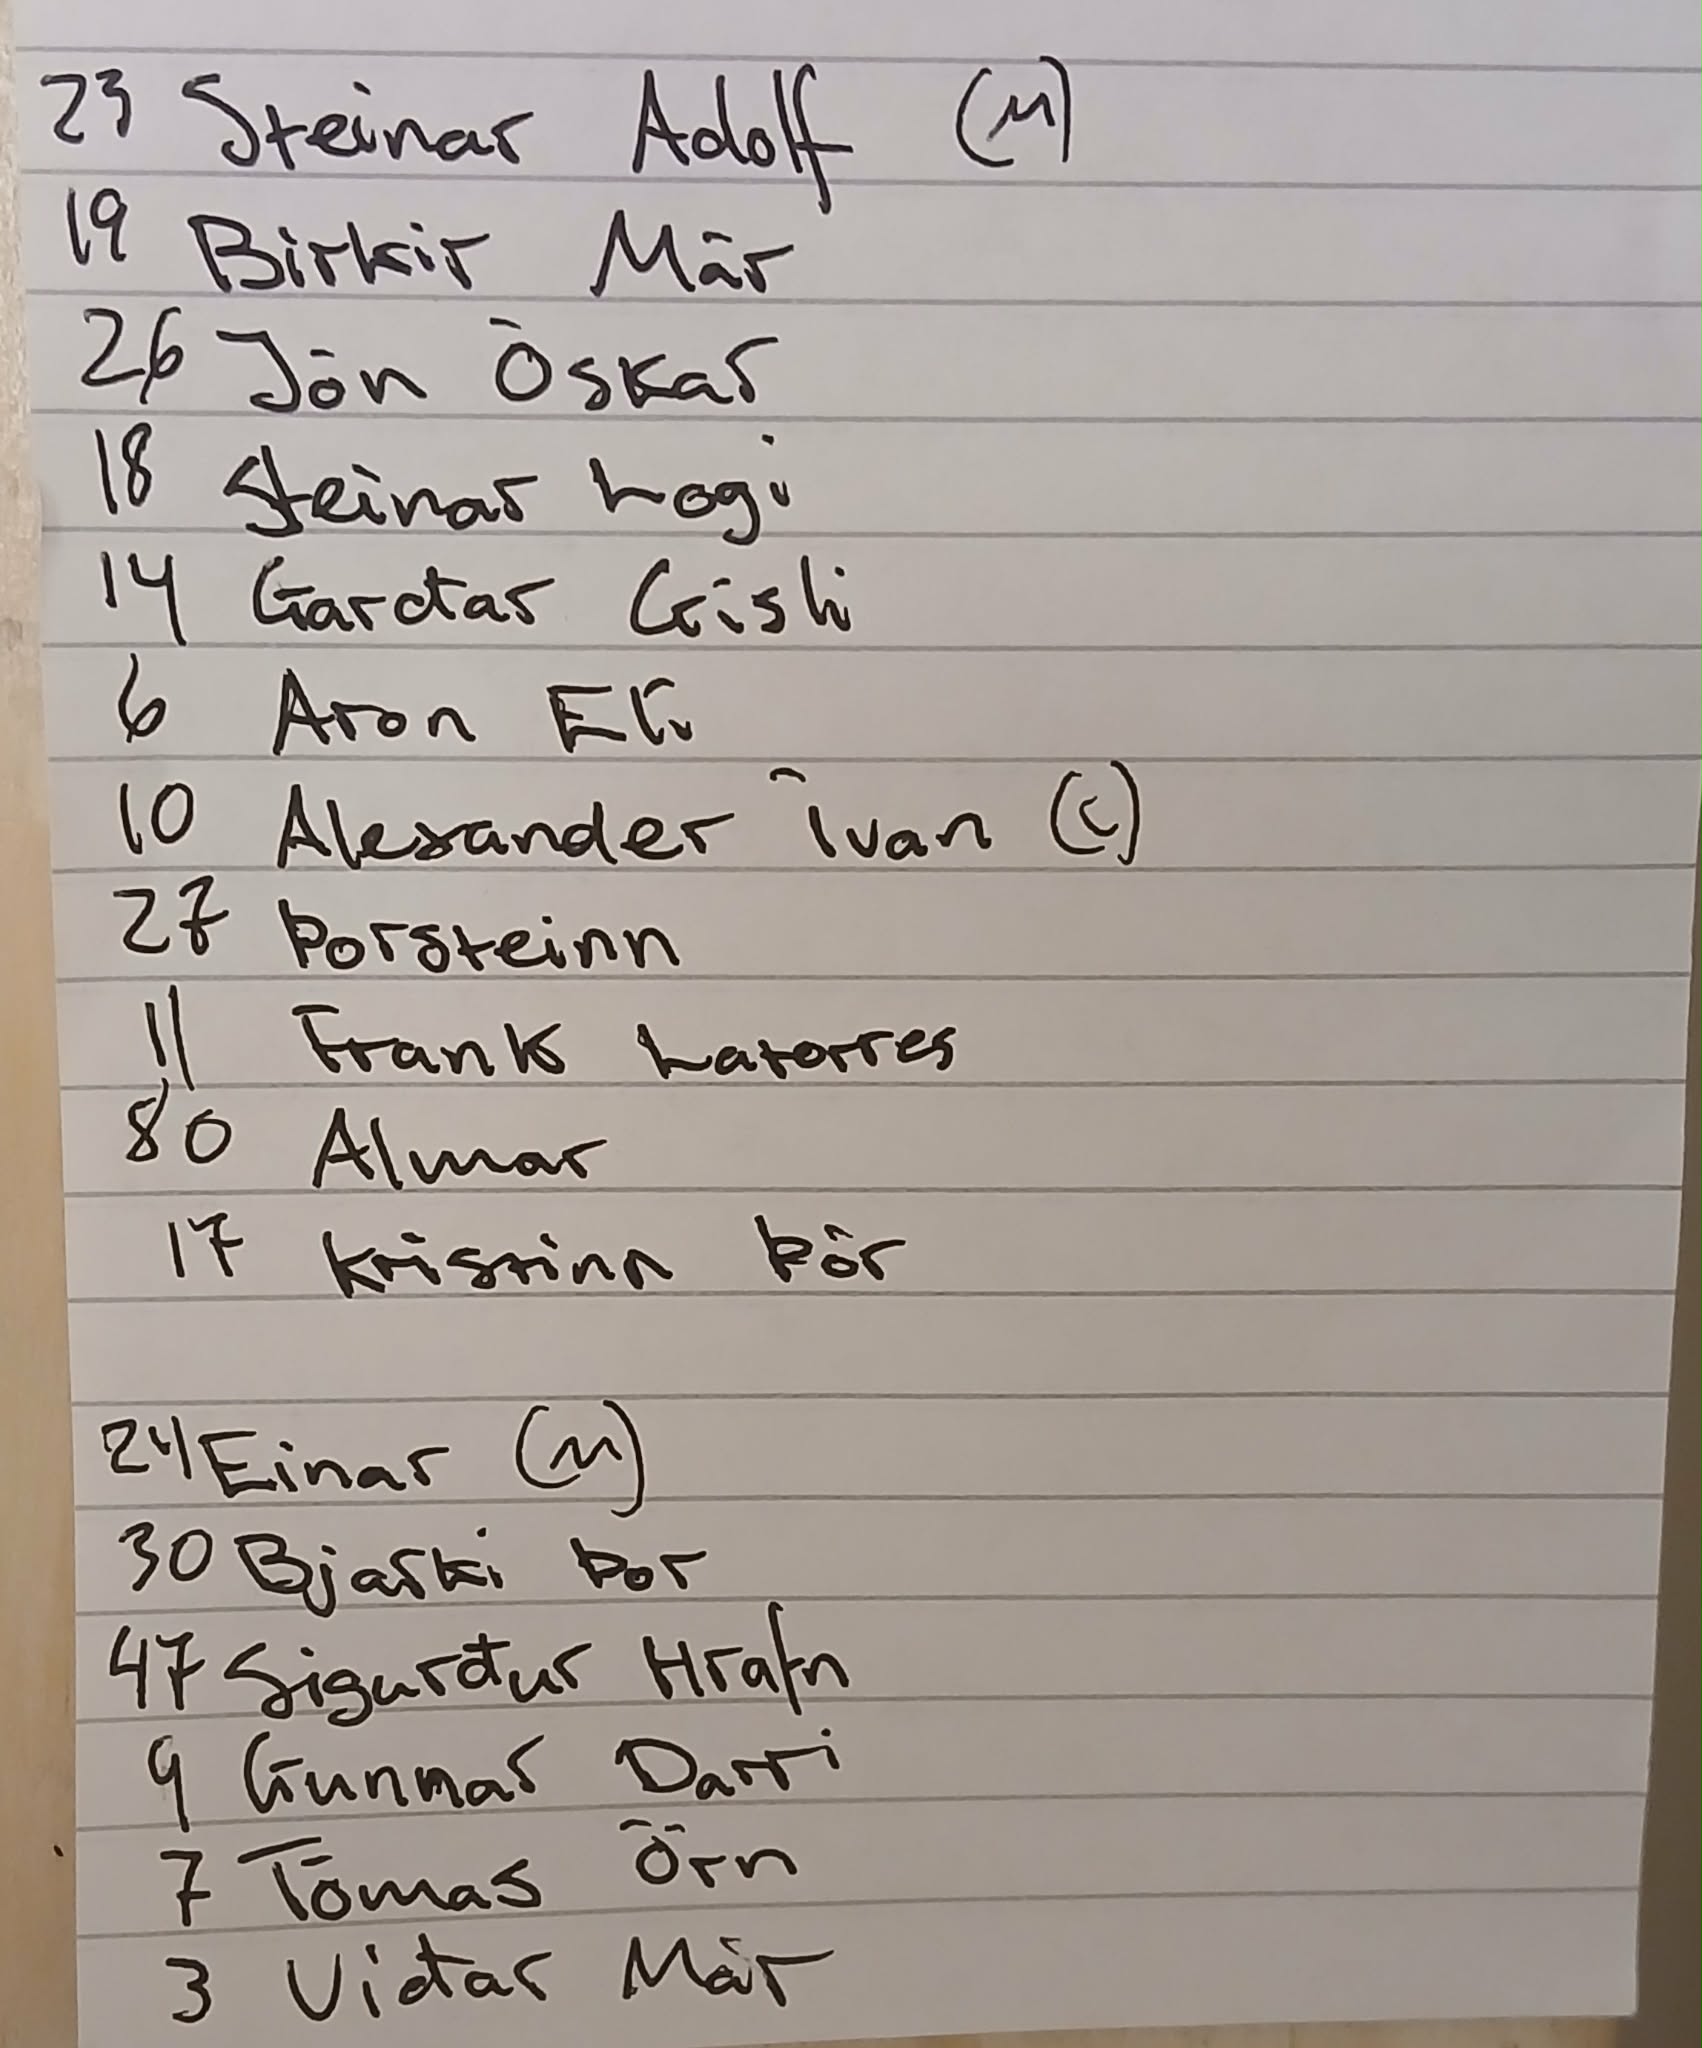 23 Steinar Adolf (M)
19 Birkir Már
26 Jón Óskar
18 Steinar Logi
14 Garðar Gísli
6 Aron Elí
10 Alexander Ívan (C)
27 Þorsteinn
11 Frank Latorres
80 Almar
17 Kristinn Þór
24 Einar (M)
30 Bjarki Þor
47 Sigurður Hrafn
9 Gunnar Darri
7 Tómas Örn
3 Viðar Már